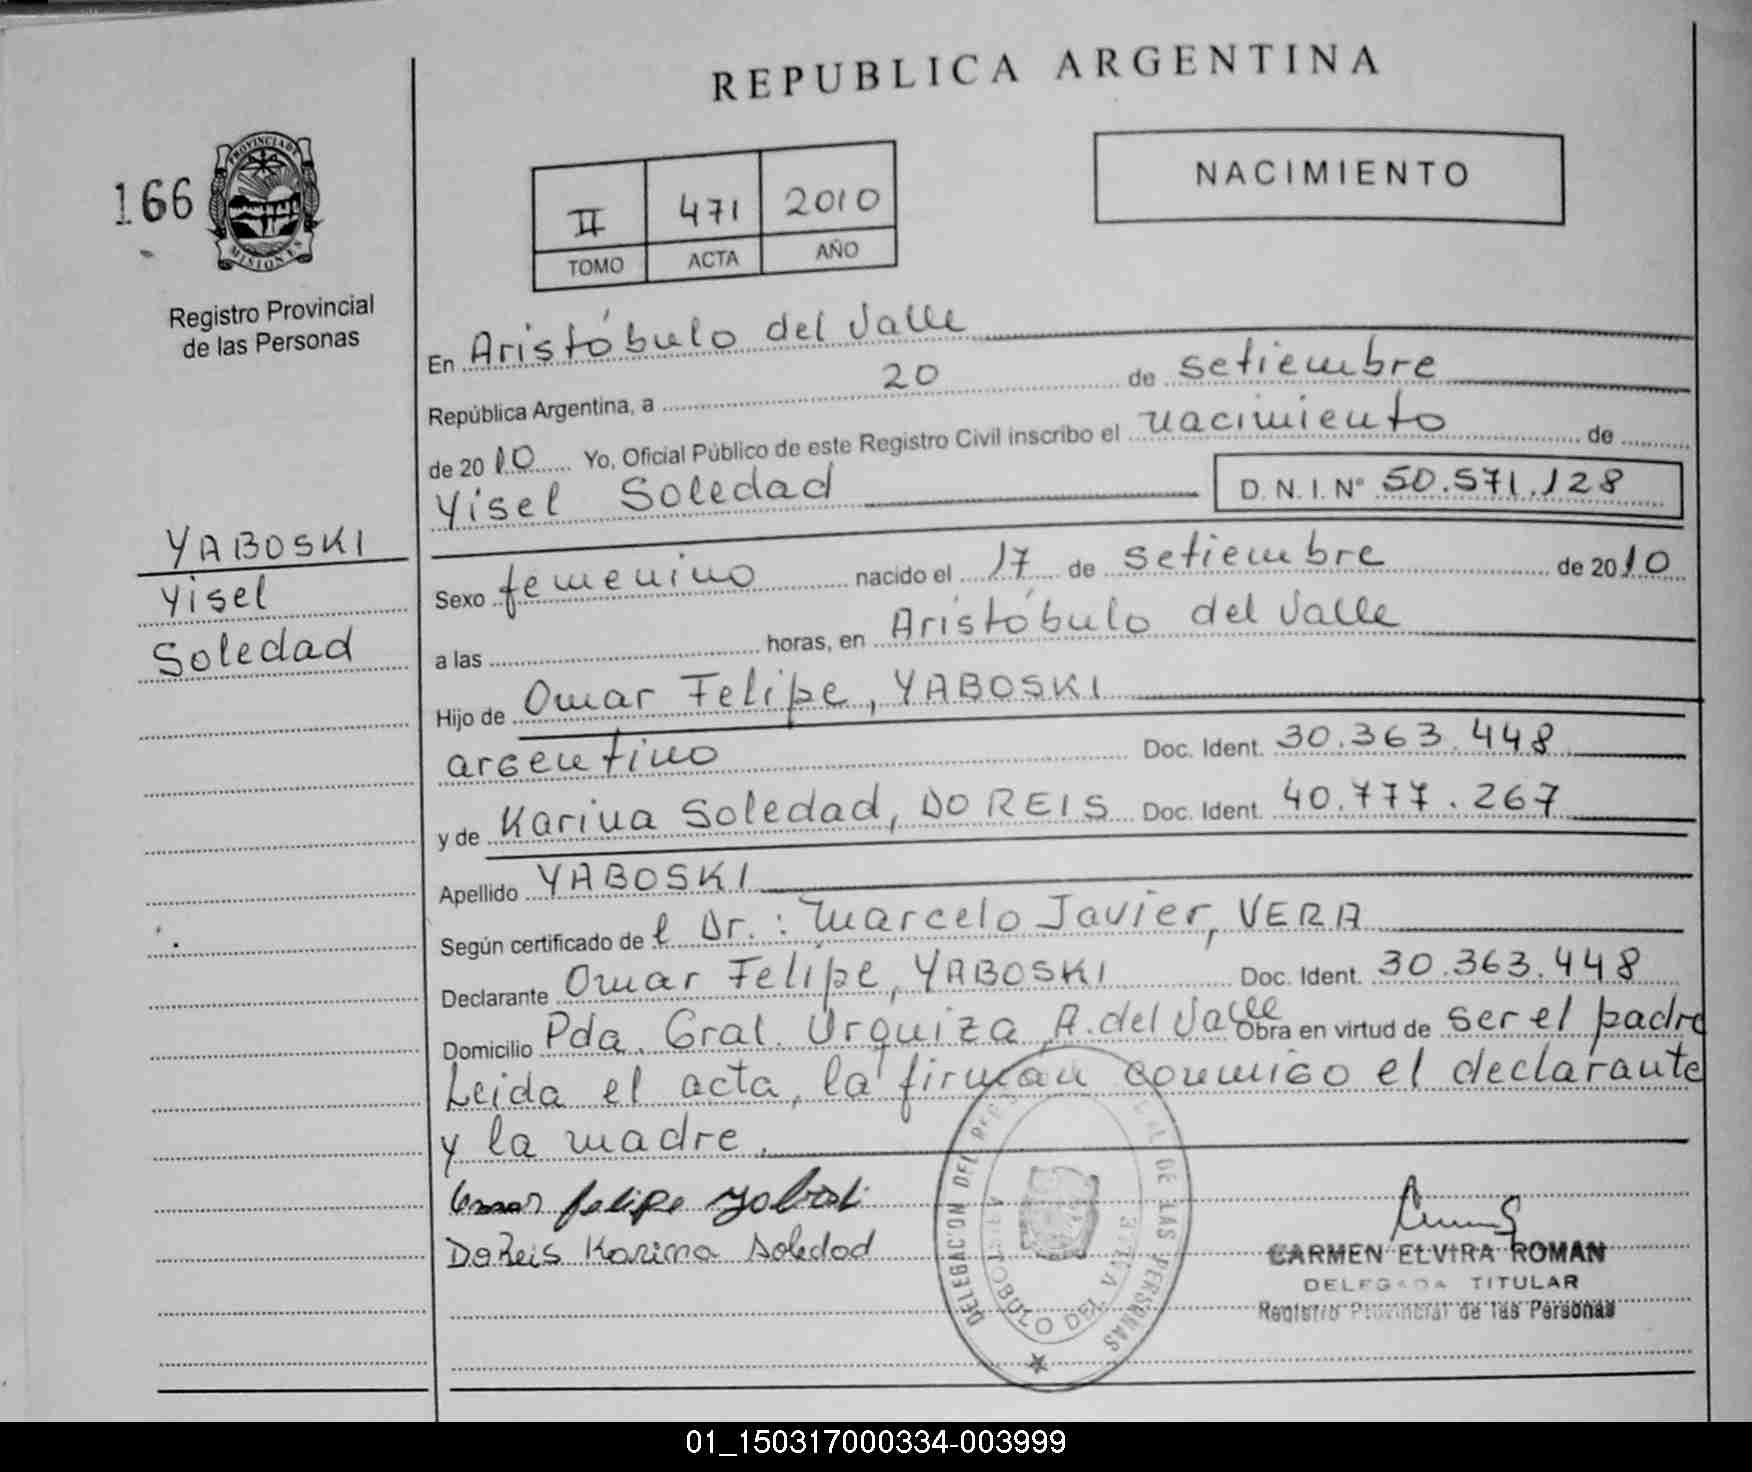 REPUBLICA ARGENTINA
166
PROVINCIA DE
MISIONES
Registro Provincial
de las Personas
II 471 2010
TOMO ACTA AÑO
NACIMIENTO
En Aristóbulo del Valle
República Argentina, a 20 de setiembre
de 2010 Yo, Oficial Público de este Registro Civil inscribo el nacimiento de
Yisel Soledad D.N.I.Nº 50.571.128
YABOSKI
Yisel
Soledad
Sexo femenino nacido el 17 de setiembre de 2010
a las horas, en Aristóbulo del Valle
Hijo de Omar Felipe, YABOSKI
argentino Doc. Ident. 30.363.448
y de Karina Soledad, DO REIS Doc. Ident. 40.777.267
Apellido YABOSKI
Según certificado de l Dr.: Marcelo Javier, VERA
Declarante Omar Felipe, YABOSKI Doc. Ident. 30.363.448
Domicilio Pda. Gral. Urquiza A. del Valle Obra en virtud de ser el padre
Leida el acta, la firman conmigo el declarante
y la madre.
Omar felipe
DoReis Karina Soledad
DELEGACION DEL DE LAS PERSONAS
ARISTOBULO DEL VALLE
CARMEN ELVIRA ROMAN
DELEGADA TITULAR
Registro Provincial de las Personas
01_150317000334-003999